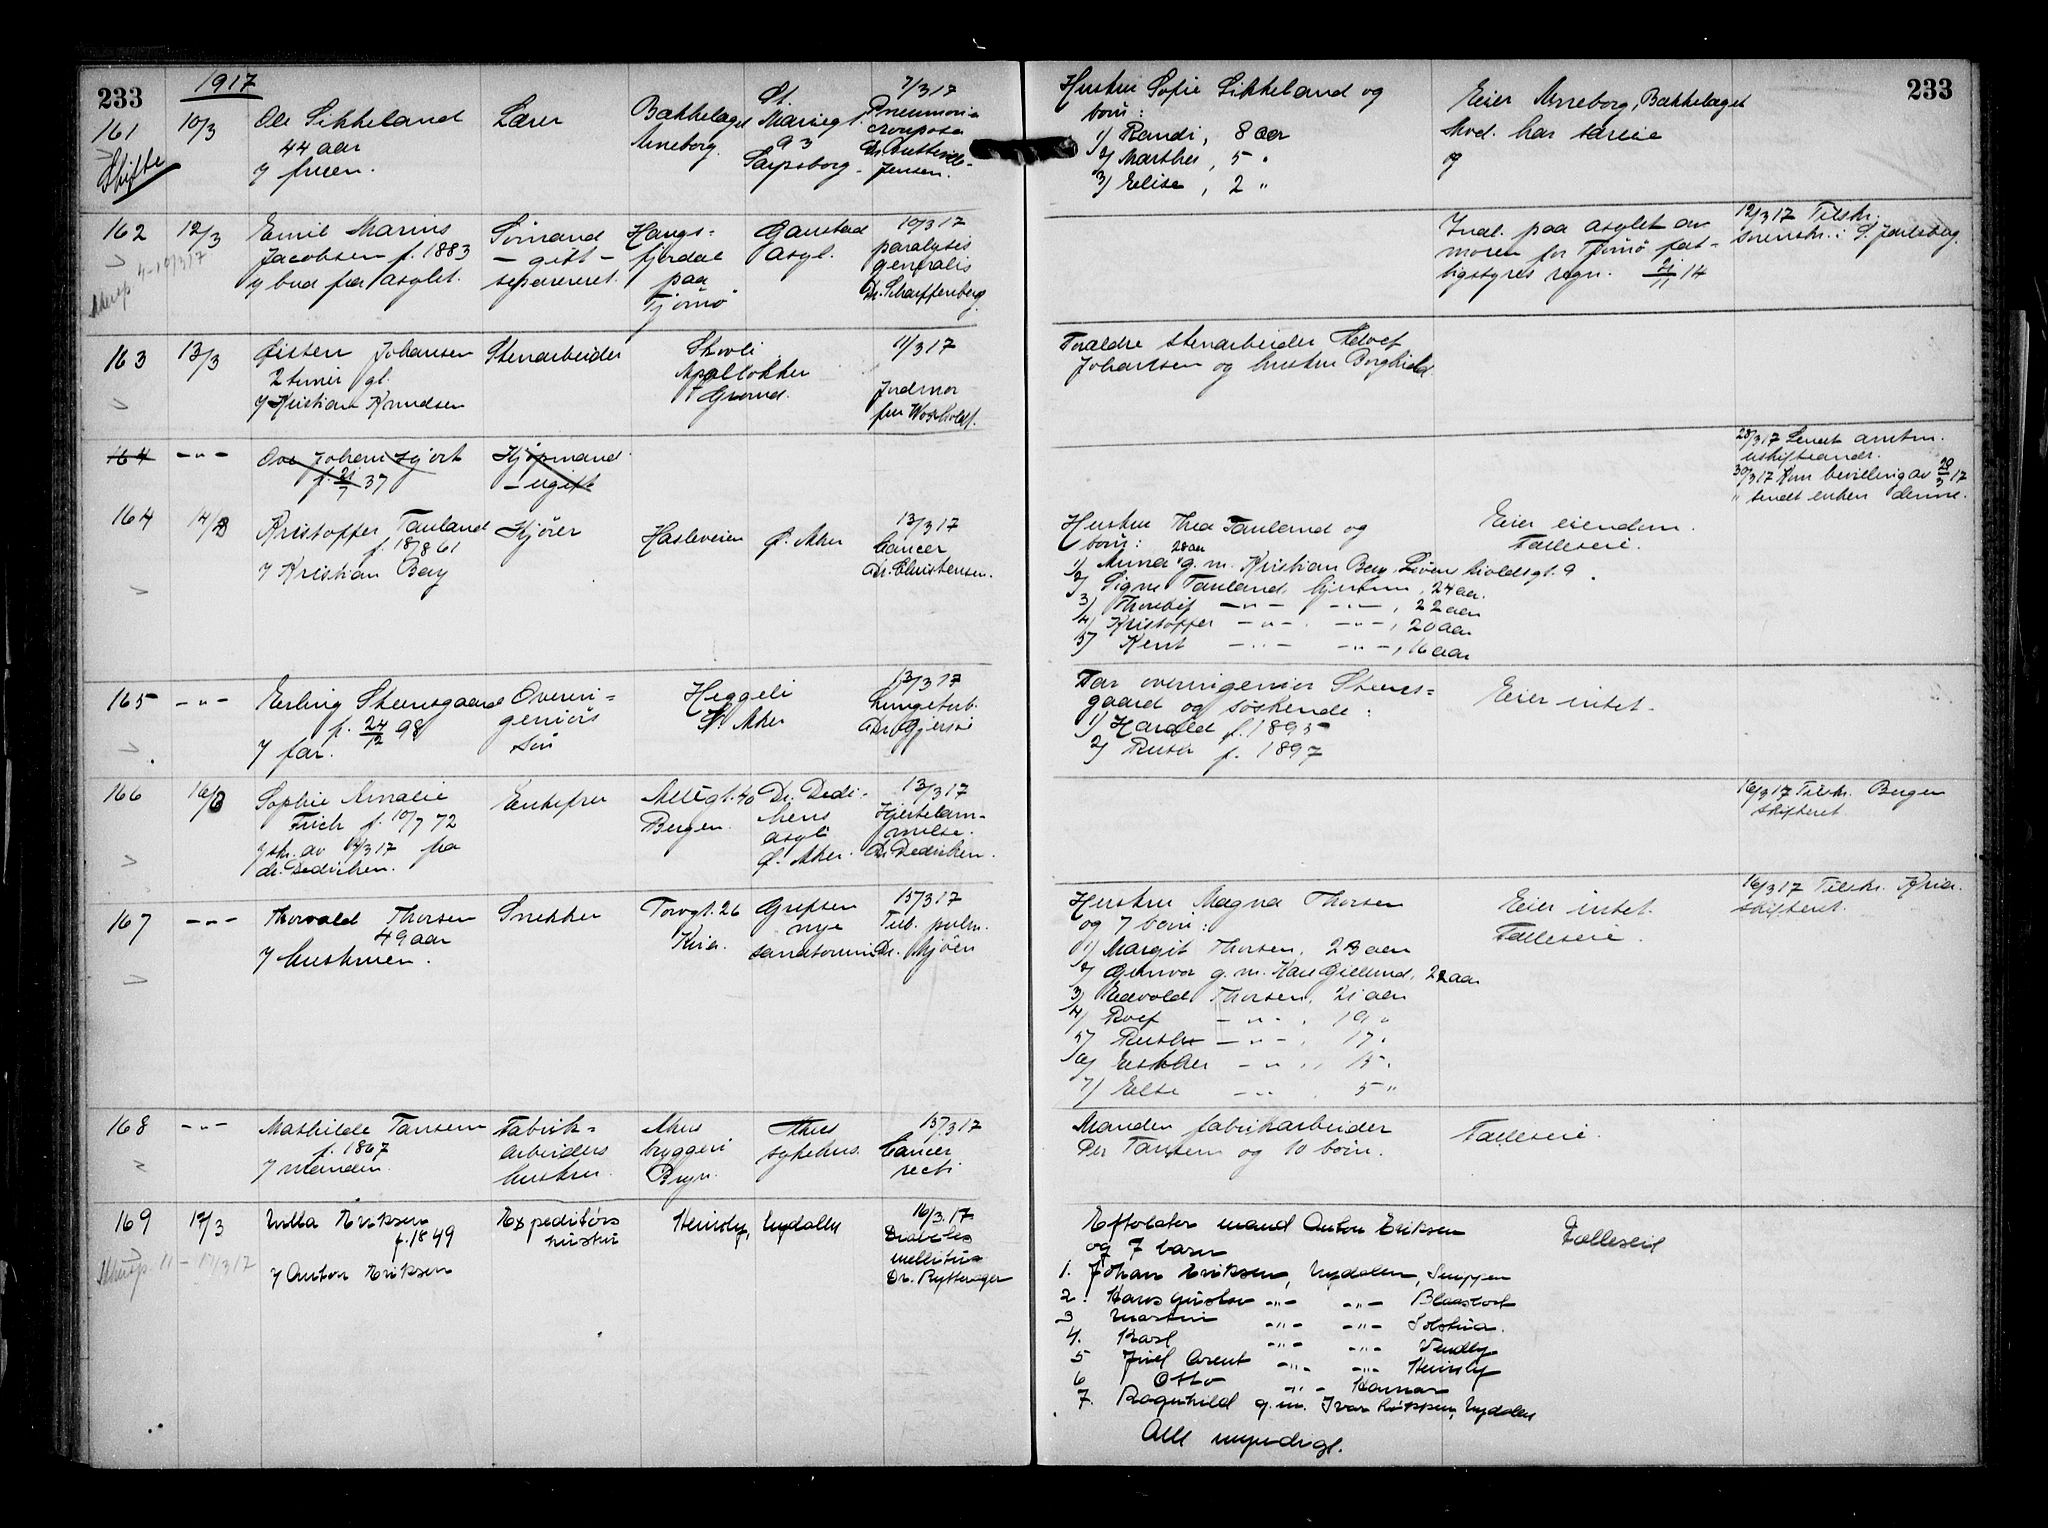 233
1917
161
10/3
Ole Sikkeland
44 aar
v/ fruen.
Lærer
Bækkelaget
Arneborg.
St.
Mariegt.
93
Sarpsborg
7/3 17
Pneumoni
crouposa
Jensen.
Skifte
162
12/3
Emil Marius
Jacobsen f. 1883
v/ bud fra asylet.
Sømand
- gift -
separeret.
Haugs-
fjordal
paa
Tjømø
Gaustad
asyl.
10/3 17
paralysis
generalis
Dr. Scharffenberg.
163
13/3
Øisten Johansen
2 timer gl.
v/ Kristian Knudsen
Stenarbeider
Skovli
Apalløkker
Grorud.
11/3 17
Jordmor
fru
164
-"-
Ove Johan Hjort
f. 21/7 37
Kjøpmand
- ugift
164
14/3
Kristoffer Tanland
f. 18/8 61
v/ Kristian Berg
Kjører
Hasleveien
Ø. Aker
13/3 17
Cancer
Dr. Christensen.
165
-"-
Erling Steensgaard
f. 24/12 98
v/ far.
Overin-
geniørs
søn
Heggeli
V. Aker
13/3 17
Lungetub.
Dr. Gjersøe
166
16/3
Sophie Amalie
Frich f. 10/7 72
v/ skr. av 14/3 17 fra
dr. Dedichen.
Enkefru
Allégt. 40
Bergen.
Dr. Dedi-
chens
asyl
Ø. Aker.
13/3 17
Hjertelam-
melse.
Dr. Dedichen.
167
-"-
Thorvald Thorsen
49 aar
v/ hustruen.
Snekker
Torvgt. 26
Kria.
Grefsen
nye
sanatorium
15/3 17
Tub. pulm.
Dr. Mjøen
168
-"-
Mathilde Tansem
f. 1867
v/ manden.
Fabrik-
arbeiders
hustru.
Akers
bryggeri
Bryn.
Akers
sykehus.
15/3 17
Cancer
recti
169
17/3
Milla Eriksen
f. 1849
v/ Anton Eriksen
Expeditørs
hustru
Heimly,
Nydalen
16/3.17
Diabetes
mellitus
Dr. Rytterager
233
Hustru Sofie Sikkeland og
børn:
1) Randi, 8 aar
2) Marthe, 5 "
3) Elise, 2 "
Eier Arneborg, Bækkelaget
Mod. har særeie
Indl. paa asylet av
moren for Tjømø fat-
tigstyres regn. 21/11 14
12/3 17 Tilskr.
sorenskr. i S. Jarlsberg.
Forældre stenarbeider Adolf
Johansen og hustru Borghild
28/3 17 Sendt amtm.
uskifteandr.
30/3 17 Kun bevilling av 29/3 17
" sendt enken denne.
Hustru Thea Tanland og
børn:
28 aar
1) Anna g.m. Kristian Berg, Løvenskioldsgt. 9
2) Signe Tanland, hjemme, 24 aar.
3) Thorleif -"- -"-, 22 aar
4) Kristoffer -"- -"-, 20 aar
5) Kent -"- -"-, 16 aar
Eier eiendom.
Fælleseie.
Far overingeniør Steens-
gaard og søskende:
1) Harald f. 1895
2) Ruth f. 1897
Eier intet.
16/3 17 Tilskr. Bergen
skifteret
Hustru Magna Thorsen
og 7 børn:
1) Margit Thorsen, 23 aar
2) Gunvor g.m. Kåre Gjellund, 22 aar
3) Edvald Thorsen, 21 aar
4) Rolf -"-, 19 "
5) Ruth -"-, 17 "
6) Esther -"-, 15 "
7) Else -"- 5 "
Eier intet.
Fælleseie.
16/3 17 Tilskr. Kria.
skifteret.
Manden fabrikarbeider
Per Tansem og 10 børn.
Fælleseie.
Efterlater mand Anton Eriksen
og 7 barn
1. Johan Eriksen, Nydalen,
2. Hans Gustav -"- -"-
3 Martin -"- -"- Solstua.
4. Karl -"- -"-
5 Juel Arent -"- -"- Heimly
6 Otto -"- Hamar
7. Ragnhild g.m. Ivar Eriksen, Nydalen
Alle myndige.
Fælleseie